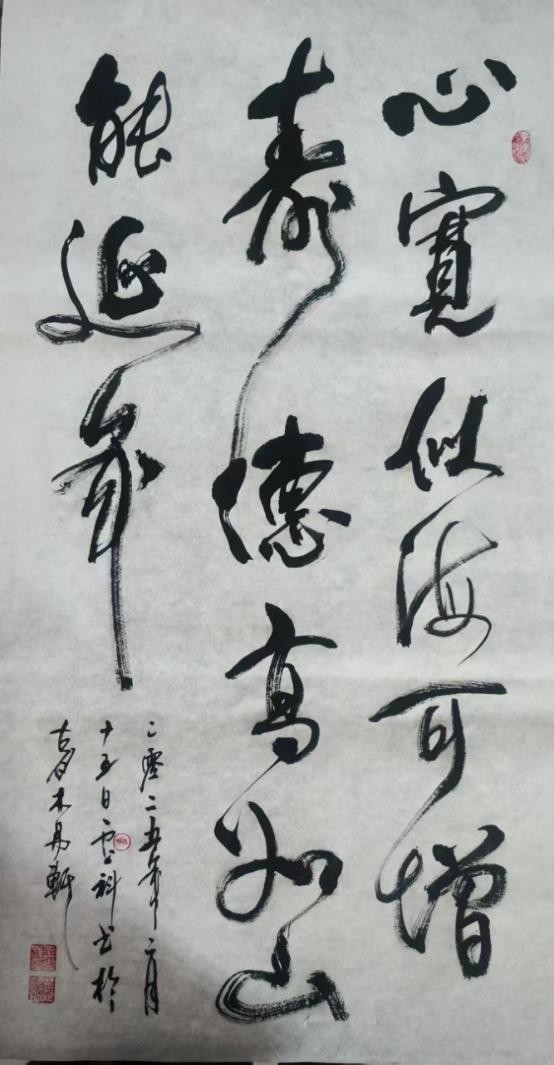 心寬似海可增
壽德高如山
能延年
二零二五年二月
十五日雲科書於
古月木丹軒